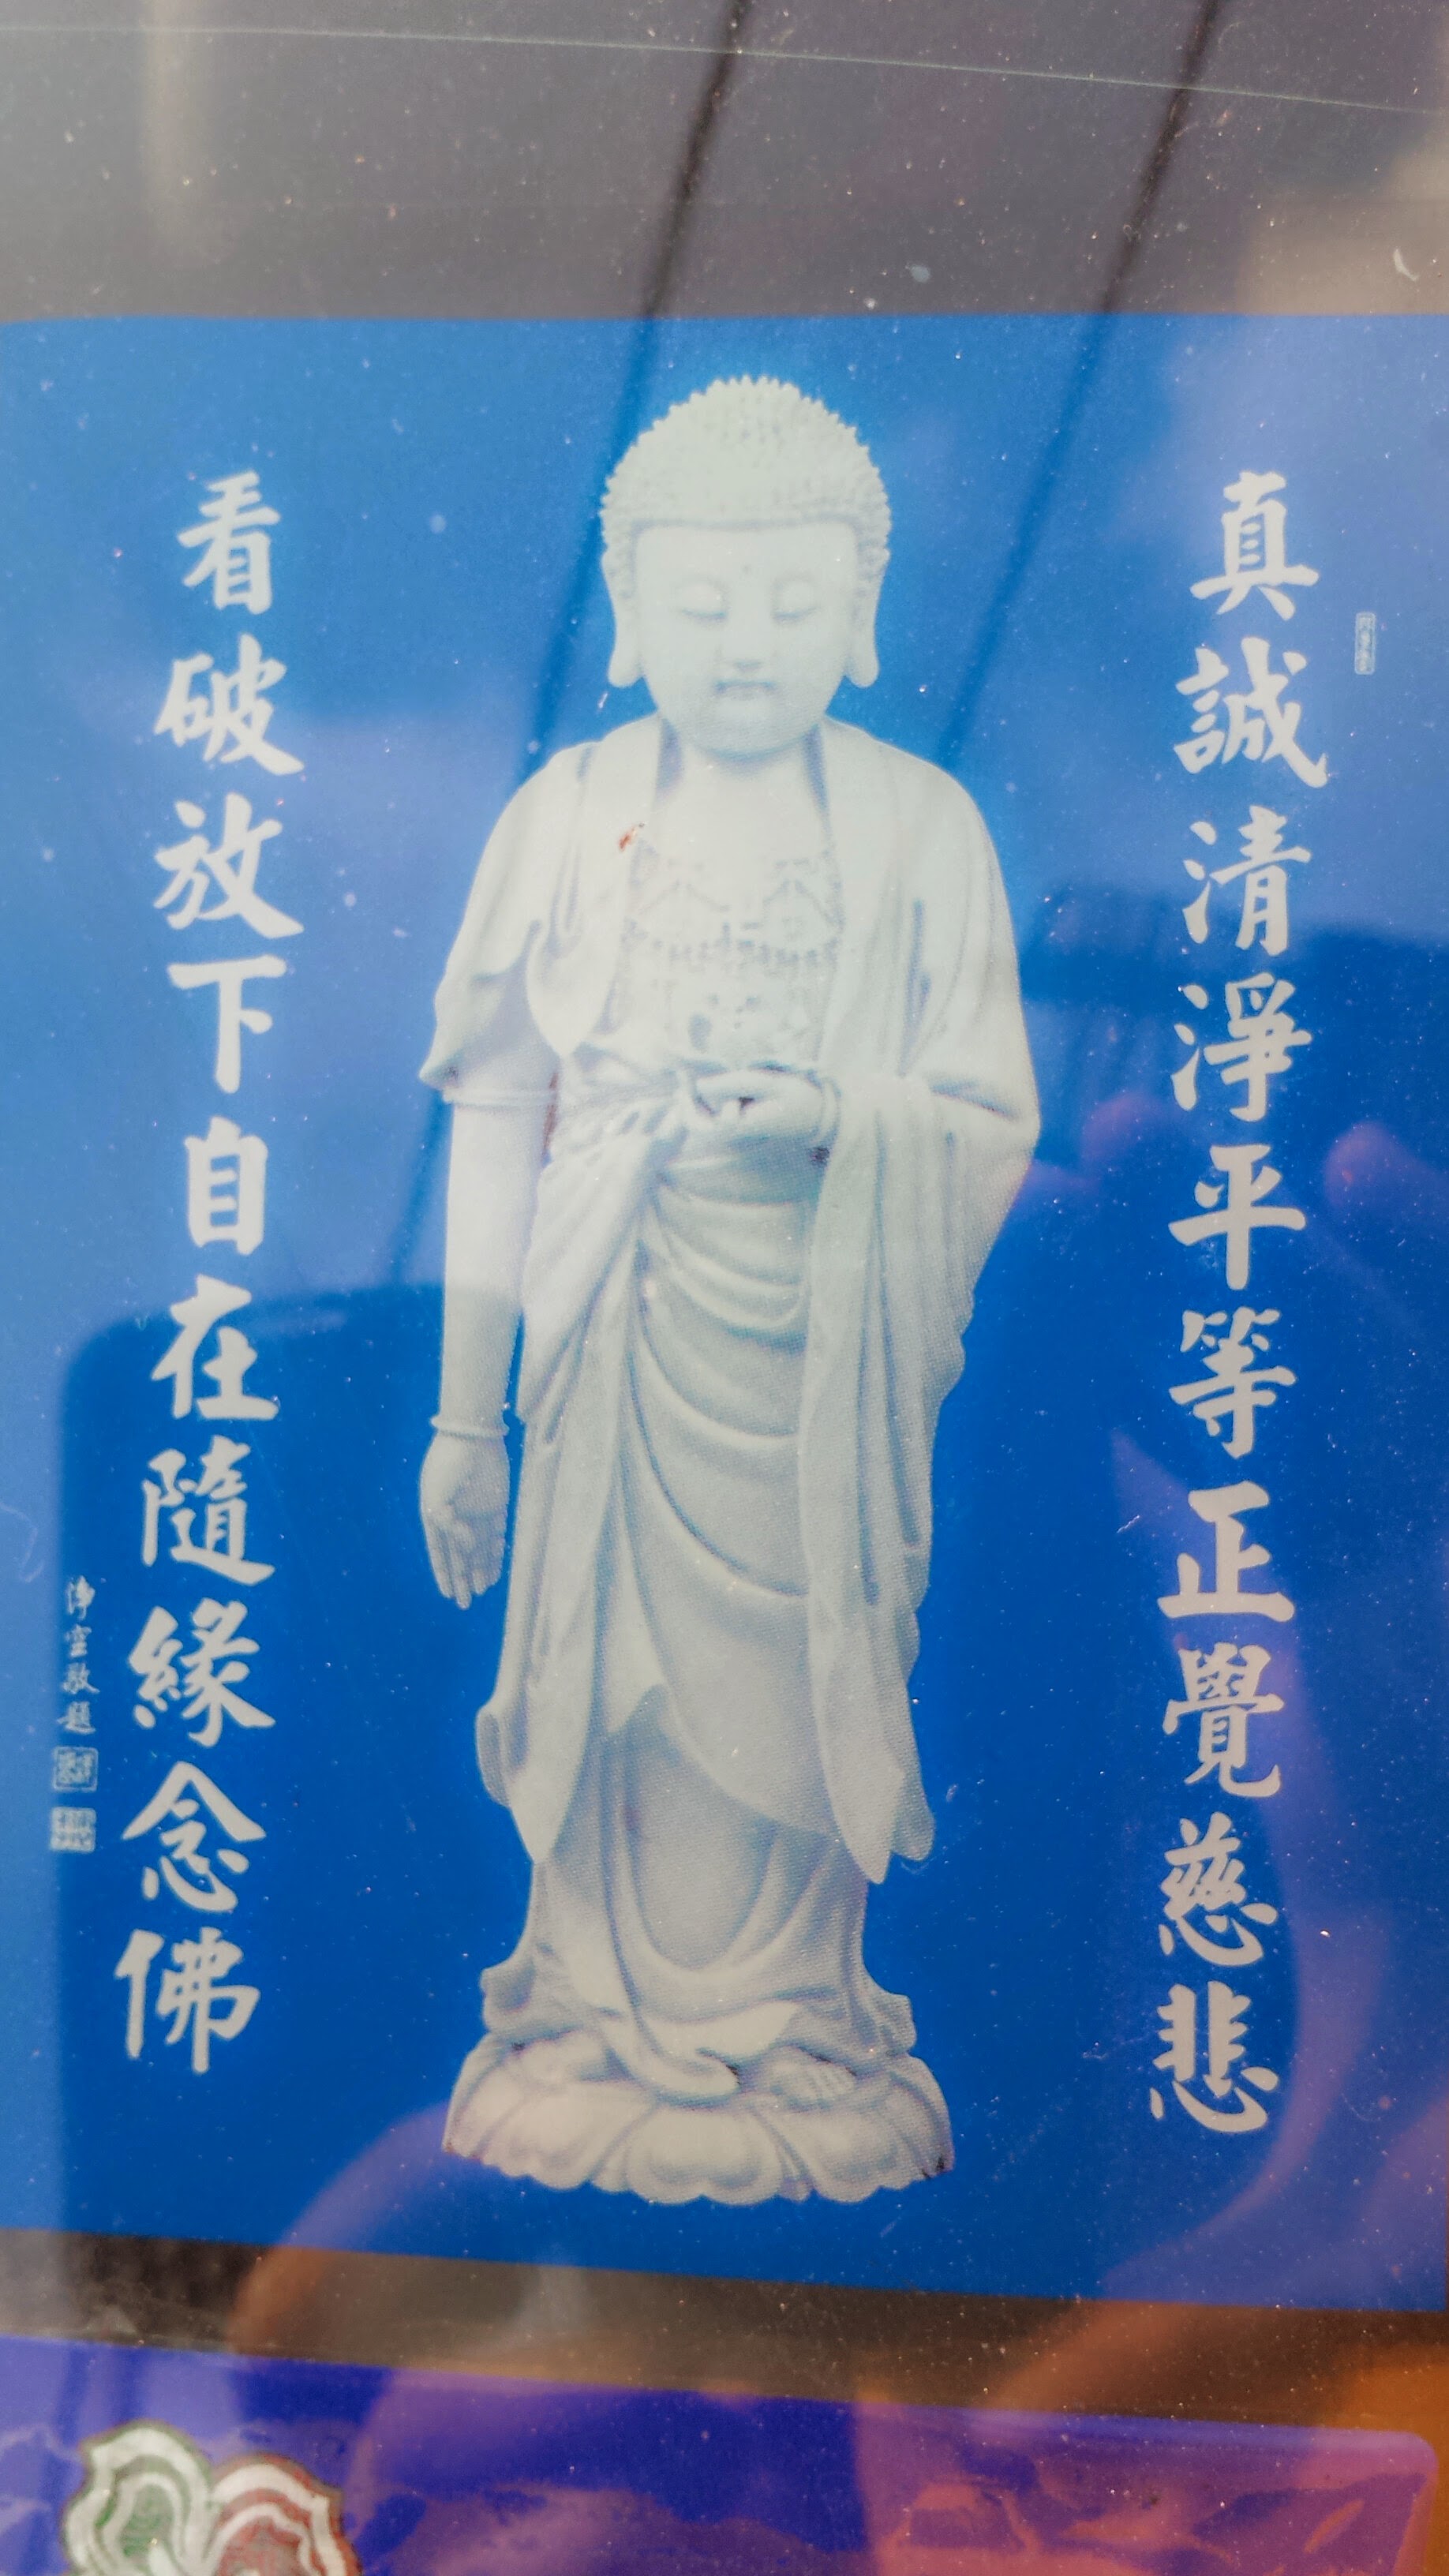 真誠清淨平等正覺慈悲
看破放下自在隨緣念佛
淨空敬題